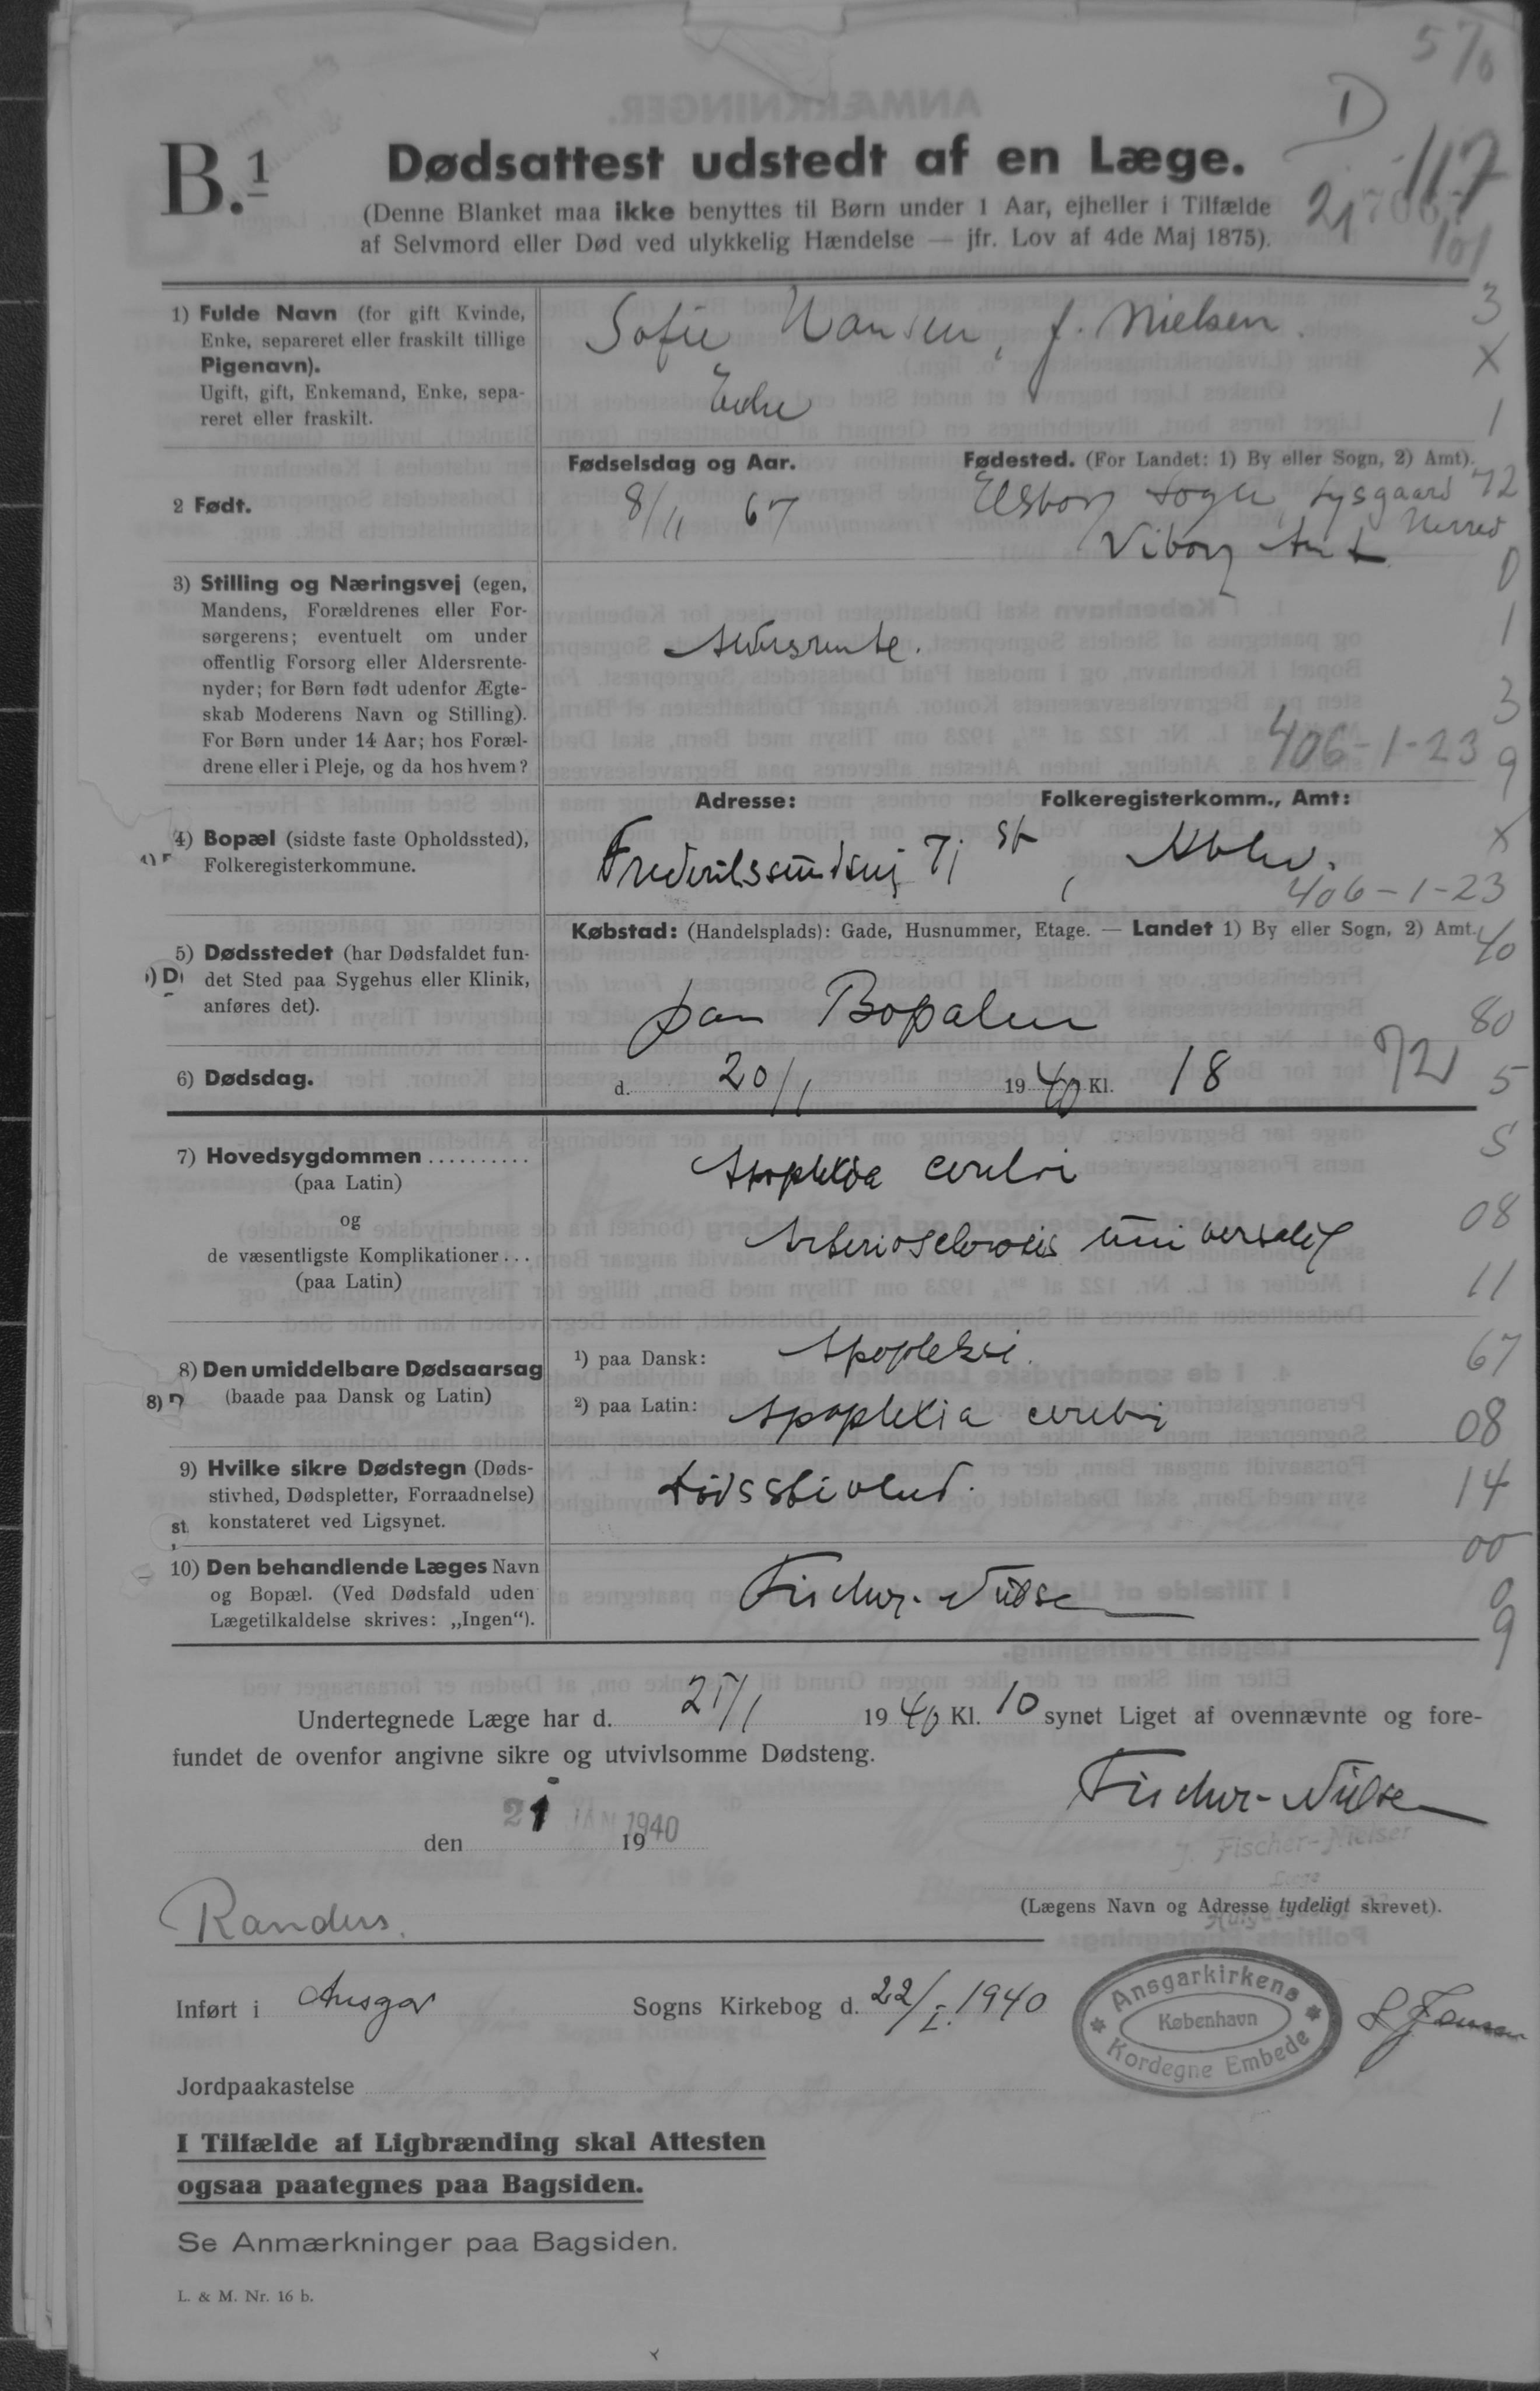 5/6
D
B.1
Dødsattest udstedt af en Læge.
117
(Denne Blanket maa ikke benyttes til Børn under 1 Aar, ejheller i Tilfælde
21
af Selvmord eller Død ved ulykkelig Hændelse — jfr. Lov af 4de Maj 1875).
101
1) Fulde Navn (for gift Kvinde,
Enke, separeret eller fraskilt tillige
Pigenavn).
Ugift, gift, Enkemand, Enke, sepa-
reret eller fraskilt.
Sofie Hansen, f. Nielsen.
Enke
3
X
1
Fødselsdag og Aar.
Fødested. (For Landet: 1) By eller Sogn, 2) Amt).
2 Født.
8/11 67
Elsborg Sogn, Lysgaard
Herred
Viborg Amt
72
0
3) Stilling og Næringsvej (egen,
Mandens, Forældrenes eller For-
sørgerens; eventuelt om under
offentlig Forsorg eller Aldersrente-
nyder; for Børn født udenfor Ægte-
skab Moderens Navn og Stilling).
For Børn under 14 Aar; hos Foræl-
drene eller i Pleje, og da hos hvem?
Aldersrente.
1
3
406-1-23
9
Adresse:
Folkeregisterkomm., Amt:
4) Bopæl (sidste faste Opholdssted),
Folkeregisterkommune.
Frederikssundsvej 71 st, Kbhv.
X
406-1-23
Købstad: (Handelsplads): Gade, Husnummer, Etage. — Landet 1) By eller Sogn, 2) Amt.
40
5) Dødsstedet (har Dødsfaldet fun-
det Sted paa Sygehus eller Klinik,
anføres det).
paa Bopælen
80
6) Dødsdag.
d. 20/1 1940 Kl. 18
72
5
7) Hovedsygdommen ..........
(paa Latin)
og
de væsentligste Komplikationer...
(paa Latin)
Apoplexia cerebri
Arteriosclerosis universalis
5
08
11
8) Den umiddelbare Dødsaarsag
(baade paa Dansk og Latin)
1) paa Dansk: Apopleksi.
2) paa Latin: Apoplexia cerebri
67
08
9) Hvilke sikre Dødstegn (Døds-
stivhed, Dødspletter, Forraadnelse)
konstateret ved Ligsynet.
Dødsstivhed.
14
00
10) Den behandlende Læges Navn
og Bopæl. (Ved Dødsfald uden
Lægetilkaldelse skrives: „Ingen“).
Fischer-Nielsen
0
9
Undertegnede Læge har d. 21/1 1940 Kl. 10 synet Liget af ovennævnte og fore-
fundet de ovenfor angivne sikre og utvivlsomme Dødsteng.
Fischer-Nielsen
den 21 JAN 1940 19
J. Fischer-Nielsen
Læge
(Lægens Navn og Adresse tydeligt skrevet).
Randers.
Inført i Ansgar Sogns Kirkebog d. 22/I. 1940
Ansgarkirkens
København
Kordegne Embede
Jordpaakastelse
I Tilfælde af Ligbrænding skal Attesten
ogsaa paategnes paa Bagsiden.
Se Anmærkninger paa Bagsiden.
L. & M. Nr. 16 b.